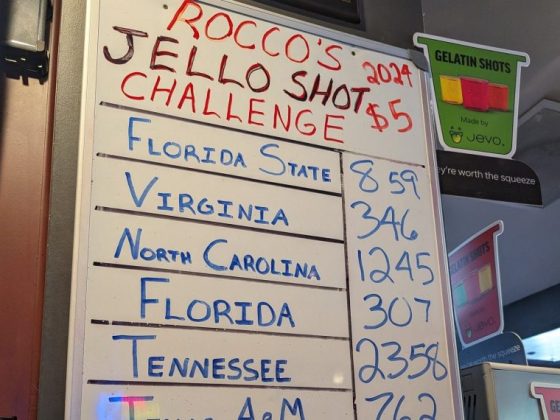 ROCCO'S
JELLO SHOT 2024
CHALLENGE $5
FLORIDA STATE 859
VIRGINIA 346
NORTH CAROLINA 1245
FLORIDA 307
TENNESSEE 2358
A&M 762
GELATIN SHOTS
Made by
JEVO.
they're worth the squeeze
GELATIN SHOTS
JEVO